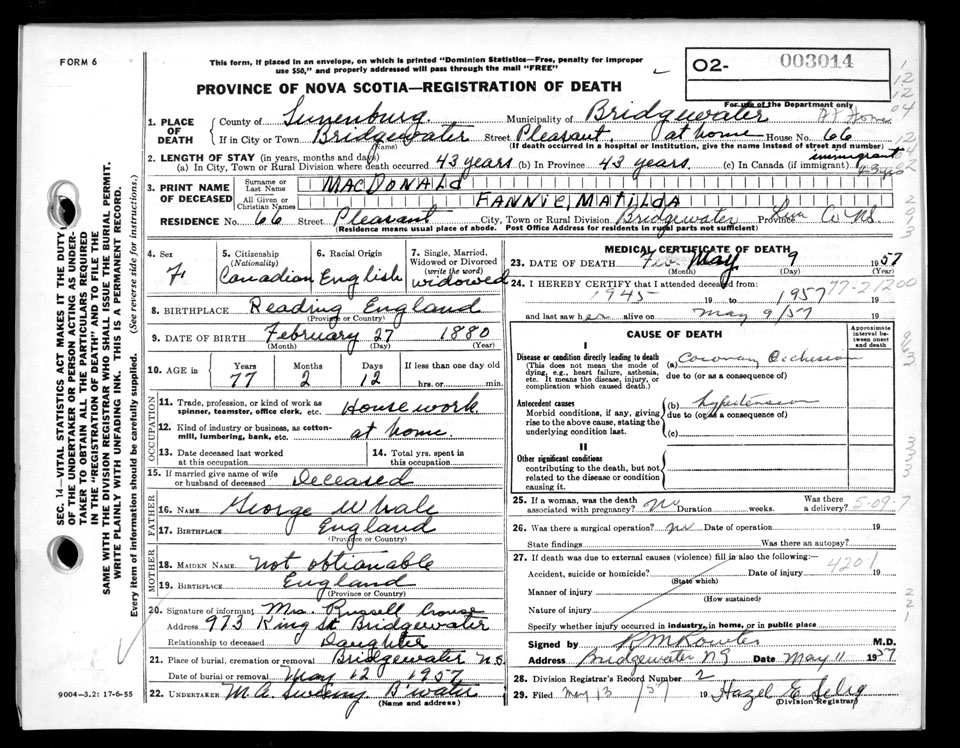 FORM 6
This form, if placed in an envelope, on which is printed "Dominion Statistics—Free, penalty for improper
use $50," and properly addressed will pass through the mail "FREE"
O2- 003014
For use of the Department only
PROVINCE OF NOVA SCOTIA—REGISTRATION OF DEATH
1. PLACE OF DEATH
County of Lunenburg Municipality of Bridgewater At Home
If in City or Town Bridgewater Street Pleasant at home House No. 66
(Name) (If death occurred in a hospital or institution, give the name instead of street and number)
2. LENGTH OF STAY (in years, months and days) immigrant
(a) In City, Town or Rural Division where death occurred 43 years (b) In Province 43 years. (c) In Canada (if immigrant) 43 yrs
3. PRINT NAME OF DECEASED
Surname or Last Name MACDONALD
All Given or Christian Names FANNIE MATILDA
RESIDENCE No. 66 Street Pleasant City, Town or Rural Division Bridgewater Province Co NS.
(Residence means usual place of abode. Post Office Address for residents in rural parts not sufficient)
4. Sex F.
5. Citizenship (Nationality) Canadian
6. Racial Origin English
7. Single, Married, Widowed or Divorced (write the word) widowed
8. BIRTHPLACE Reading England
(Province or Country)
9. DATE OF BIRTH February 27 1880
(Month) (Day) (Year)
10. AGE in Years 77 Months 2 Days 12 If less than one day old
hrs. or min.
OCCUPATION
11. Trade, profession, or kind of work as
spinner, teamster, office clerk, etc. House work.
12. Kind of industry or business, as cotton-
mill, lumbering, bank, etc. at home.
13. Date deceased last worked
at this occupation
14. Total yrs. spent in
this occupation
15. If married give name of wife
or husband of deceased Deceased
FATHER
16. NAME George Whale
17. BIRTHPLACE England
(Province or Country)
MOTHER
18. MAIDEN NAME Not obtianable
19. BIRTHPLACE England
(Province or Country)
20. Signature of informant Mrs. Russell Crouse
Address 973 King St Bridgewater
Relationship to deceased Daughter
21. Place of burial, cremation or removal Bridgewater N.S.
Date of burial or removal May 12 1957
22. UNDERTAKER M.A. Sweeny B'water
(Name and address)
MEDICAL CERTIFICATE OF DEATH
23. DATE OF DEATH May 9 1957
(Month) (Day) (Year)
24. I HEREBY CERTIFY that I attended deceased from:
1945 19 to 1957 19
77-21200
and last saw her alive on May 9/57 19
CAUSE OF DEATH
Approximate interval between onset and death
I
Disease or condition directly leading to death
(This does not mean the mode of
dying, e.g., heart failure, asthenia,
etc. It means the disease, injury, or
complication which caused death.)
(a) Coronary Occlusion
due to (or as a consequence of)
Antecedent causes
Morbid conditions, if any, giving
rise to the above cause, stating the
underlying condition last.
(b) hypertension
due to (or as a consequence of)
(c)
II
Other significant conditions
contributing to the death, but not
related to the disease or condition
causing it.
25. If a woman, was the death
associated with pregnancy? No Duration weeks. Was there
a delivery?
5-09-7
26. Was there a surgical operation? no Date of operation 19
State findings Was there an autopsy?
27. If death was due to external causes (violence) fill in also the following:—
4201
Accident, suicide or homicide? Date of injury 19
(State which)
Manner of injury
(How sustained)
Nature of injury
Specify whether injury occurred in industry, in home, or in public place
Signed by M.D.
Address Bridgewater NS Date May 11 1957
28. Division Registrar's Record Number 2
29. Filed May 13 /57 19 Hazel E Selig
(Division Registrar)
SEC. 14—VITAL STATISTICS ACT MAKES IT THE DUTY
OF THE UNDERTAKER OR PERSON ACTING AS UNDER-
TAKER TO OBTAIN ALL THE PARTICULARS REQUIRED
IN THE "REGISTRATION OF DEATH" AND TO FILE THE
SAME WITH THE DIVISION REGISTRAR WHO SHALL ISSUE THE BURIAL PERMIT.
WRITE PLAINLY WITH UNFADING INK. THIS IS A PERMANENT RECORD.
Every item of information should be carefully supplied. (See reverse side for instructions.)
9004-3.2: 17-6-55